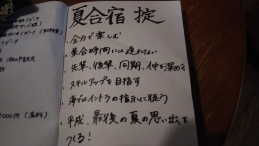 夏合宿 掟
・全力で楽しむ
・集合時間には遅れない
・先輩、後輩、同期、仲を深める
・スキルアップを目指す
・海ではイントラの指示に従う
・平成、最後の夏の思い出を
つくる!